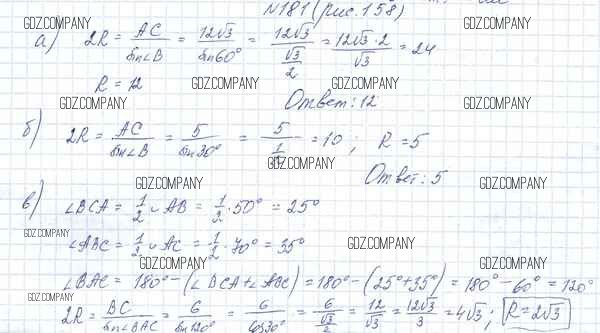 N181 (рис. 158)
GDZ.COMPANY GDZ.COMPANY
а) 2R = AC/sin∠B = 12√3/sin60° = 12√3/(√3/2) = 12√3·2/√3 = 24
R = 12
GDZ.COMPANY GDZ.COMPANY
GDZ.COMPANY Ответ: 12 GDZ.COMPANY
б) 2R = AC/sin∠B = 5/sin30° = 5/(1/2) = 10; R = 5
GDZ.COMPANY
Ответ: 5
GDZ.COMPANY GDZ.COMPANY
в) ∠BCA = 1/2 ∪ AB = 1/2 · 50° = 25°
GDZ.COMPANY GDZ.COMPANY
∠ABC = 1/2 ∪ AC = 1/2 · 70° = 35°
GDZ.COMPANY GDZ.COMPANY
∠BAC = 180° - (∠BCA + ∠ABC) = 180° - (25° + 35°) = 180° - 60° = 120°
GDZ.COMPANY
2R = BC/sin∠BAC = 6/sin120° = 6/cos30° = 6/(√3/2) = 12/√3 = 12√3/3 = 4√3; R = 2√3